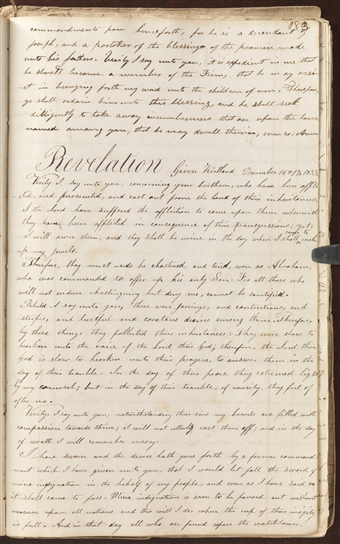 183
commandments from henceforth, for he is a decendant of
Joseph, and a partaker of the blessings of the promise made
unto his fathers. Verily I say unto you, it is expedient in me that
he should become a member of the Firm, that he may assi-
st in bringing forth my word unto the children of men. Therefore
ye shall ordain him unto this blessing, and he shall seek
diligently to take away incumbrances that are upon the house
named among you, that he may dwell therein, even so. Amen
Revelation Given Kirtland December 16 & 17 1833
Verily I say unto you, concerning your brethren, who have been affli-
cted, and persecuted, and cast out from the land of their inheritance,
I the Lord have suffered the affliction to come upon them wherewith
they have been afflicted in consequence of their transgressions; yet,
I will own them, and they shall be mine in the day when I shall come to make
up my jewels.
Therefore, they must needs be chastened, and tried, even as Abraham,
who was commanded to offer up his only Son: for all those who
will not endure chastening but deny me, cannot be sanctified.
Behold, I say unto you, there were jarings, and contentions, and
strifes, and lustful and covetous desires among them: Therefore
by these things they polluted their inheritances. They were slow to
hearken unto the voice of the Lord their God; therefore, the Lord their
God is slow to hearken unto their prayers, to answer them in the
day of their trouble. In the day of their peace they esteemed lightly
my counsel; but in the day of their trouble, of necessity, they feel
after me.
Verily, I say unto you, notwithstanding their sins my bowels are filled with
compassion towards them; I will not utterly cast them off; and in the day
of wrath I will remember mercy.
I have sworn and the decree hath gone forth by a former command-
ment which I have given unto you, that I would let fall the sword of
mine indignation in the behalf of my people; and even as I have said so
it shall come to pass. Mine indignation is soon to be poured out without
measure upon all nations and this will I do when the cup of their iniquity
is full. And in that day all who are found upon the watch tower,